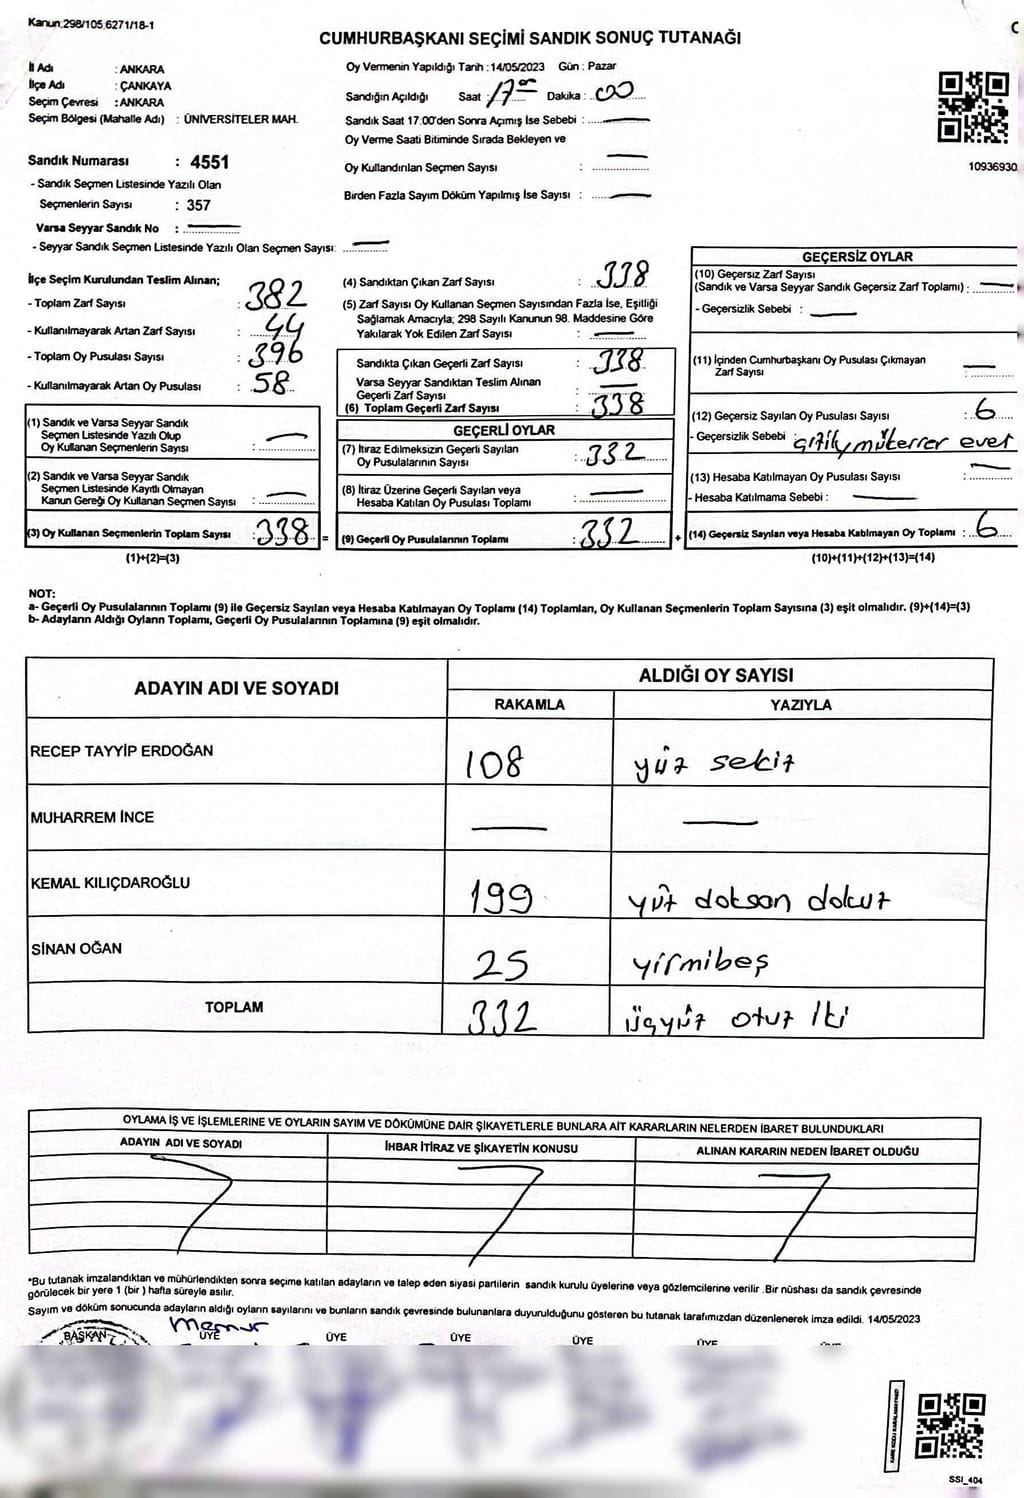 Kanun;298/105,6271/18-1
CUMHURBAŞKANI SEÇİMİ SANDIK SONUÇ TUTANAĞI
İl Adı : ANKARA
İlçe Adı : ÇANKAYA
Seçim Çevresi : ANKARA
Seçim Bölgesi (Mahalle Adı) : ÜNİVERSİTELER MAH.
Sandık Numarası : 4551
- Sandık Seçmen Listesinde Yazılı Olan
Seçmenlerin Sayısı : 357
Varsa Seyyar Sandık No :
- Seyyar Sandık Seçmen Listesinde Yazılı Olan Seçmen Sayısı:
Oy Vermenin Yapıldığı Tarih : 14/05/2023 Gün : Pazar
Sandığın Açıldığı Saat : 17 00 Dakika : 00
Sandık Saat 17:00'den Sonra Açımış İse Sebebi :
Oy Verme Saati Bitiminde Sırada Bekleyen ve
Oy Kullandırılan Seçmen Sayısı :
Birden Fazla Sayım Döküm Yapılmış İse Sayısı :
10936930
İlçe Seçim Kurulundan Teslim Alınan;
- Toplam Zarf Sayısı : 382
- Kullanılmayarak Artan Zarf Sayısı : 44
- Toplam Oy Pusulası Sayısı : 396
- Kullanılmayarak Artan Oy Pusulası : 58
(1) Sandık ve Varsa Seyyar Sandık
Seçmen Listesinde Yazılı Olup
Oy Kullanan Seçmenlerin Sayısı :
(2) Sandık ve Varsa Seyyar Sandık
Seçmen Listesinde Kayıtlı Olmayan
Kanun Gereği Oy Kullanan Seçmen Sayısı :
(3) Oy Kullanan Seçmenlerin Toplam Sayısı : 338 =
(1)+(2)=(3)
(4) Sandıktan Çıkan Zarf Sayısı : 338
(5) Zarf Sayısı Oy Kullanan Seçmen Sayısından Fazla İse, Eşitliği
Sağlamak Amacıyla; 298 Sayılı Kanunun 98. Maddesine Göre
Yakılarak Yok Edilen Zarf Sayısı :
Sandıkta Çıkan Geçerli Zarf Sayısı : 338
Varsa Seyyar Sandıktan Teslim Alınan
Geçerli Zarf Sayısı :
(6) Toplam Geçerli Zarf Sayısı : 338
GEÇERLİ OYLAR
(7) İtiraz Edilmeksizin Geçerli Sayılan
Oy Pusulalarının Sayısı : 332
(8) İtiraz Üzerine Geçerli Sayılan veya
Hesaba Katılan Oy Pusulası Toplamı :
(9) Geçerli Oy Pusulalarının Toplamı : 332 +
GEÇERSİZ OYLAR
(10) Geçersiz Zarf Sayısı
(Sandık ve Varsa Seyyar Sandık Geçersiz Zarf Toplamı) :
- Geçersizlik Sebebi :
(11) İçinden Cumhurbaşkanı Oy Pusulası Çıkmayan
Zarf Sayısı :
(12) Geçersiz Sayılan Oy Pusulası Sayısı : 6
- Geçersizlik Sebebi : mükerrer evet
(13) Hesaba Katılmayan Oy Pusulası Sayısı :
- Hesaba Katılmama Sebebi :
(14) Geçersiz Sayılan veya Hesaba Katılmayan Oy Toplamı : 6
(10)+(11)+(12)+(13)=(14)
NOT:
a- Geçerli Oy Pusulalarının Toplamı (9) ile Geçersiz Sayılan veya Hesaba Katılmayan Oy Toplamı (14) Toplamları, Oy Kullanan Seçmenlerin Toplam Sayısına (3) eşit olmalıdır. (9)+(14)=(3)
b- Adayların Aldığı Oyların Toplamı, Geçerli Oy Pusulalarının Toplamına (9) eşit olmalıdır.
ADAYIN ADI VE SOYADI ALDIĞI OY SAYISI
RAKAMLA YAZIYLA
RECEP TAYYİP ERDOĞAN 108 yüz sekiz
MUHARREM İNCE
KEMAL KILIÇDAROĞLU 199 yüz doksan dokuz
SİNAN OĞAN 25 yirmibeş
TOPLAM 332 üçyüz otuz iki
OYLAMA İŞ VE İŞLEMLERİNE VE OYLARIN SAYIM VE DÖKÜMÜNE DAİR ŞİKAYETLERLE BUNLARA AİT KARARLARIN NELERDEN İBARET BULUNDUKLARI
ADAYIN ADI VE SOYADI İHBAR İTİRAZ VE ŞİKAYETİN KONUSU ALINAN KARARIN NEDEN İBARET OLDUĞU
*Bu tutanak imzalandıktan ve mühürlendikten sonra seçime katılan adayların ve talep eden siyasi partilerin sandık kurulu üyelerine veya gözlemcilerine verilir .Bir nüshası da sandık çevresinde
görülecek bir yere 1 (bir ) hafta süreyle asılır.
Sayım ve döküm sonucunda adayların aldığı oyların sayılarını ve bunların sandık çevresinde bulunanlara duyurulduğunu gösteren bu tutanak tarafımızdan düzenlenerek imza edildi. 14/05/2023
Memur
BAŞKAN ÜYE ÜYE ÜYE ÜYE ÜYE
SSI_404